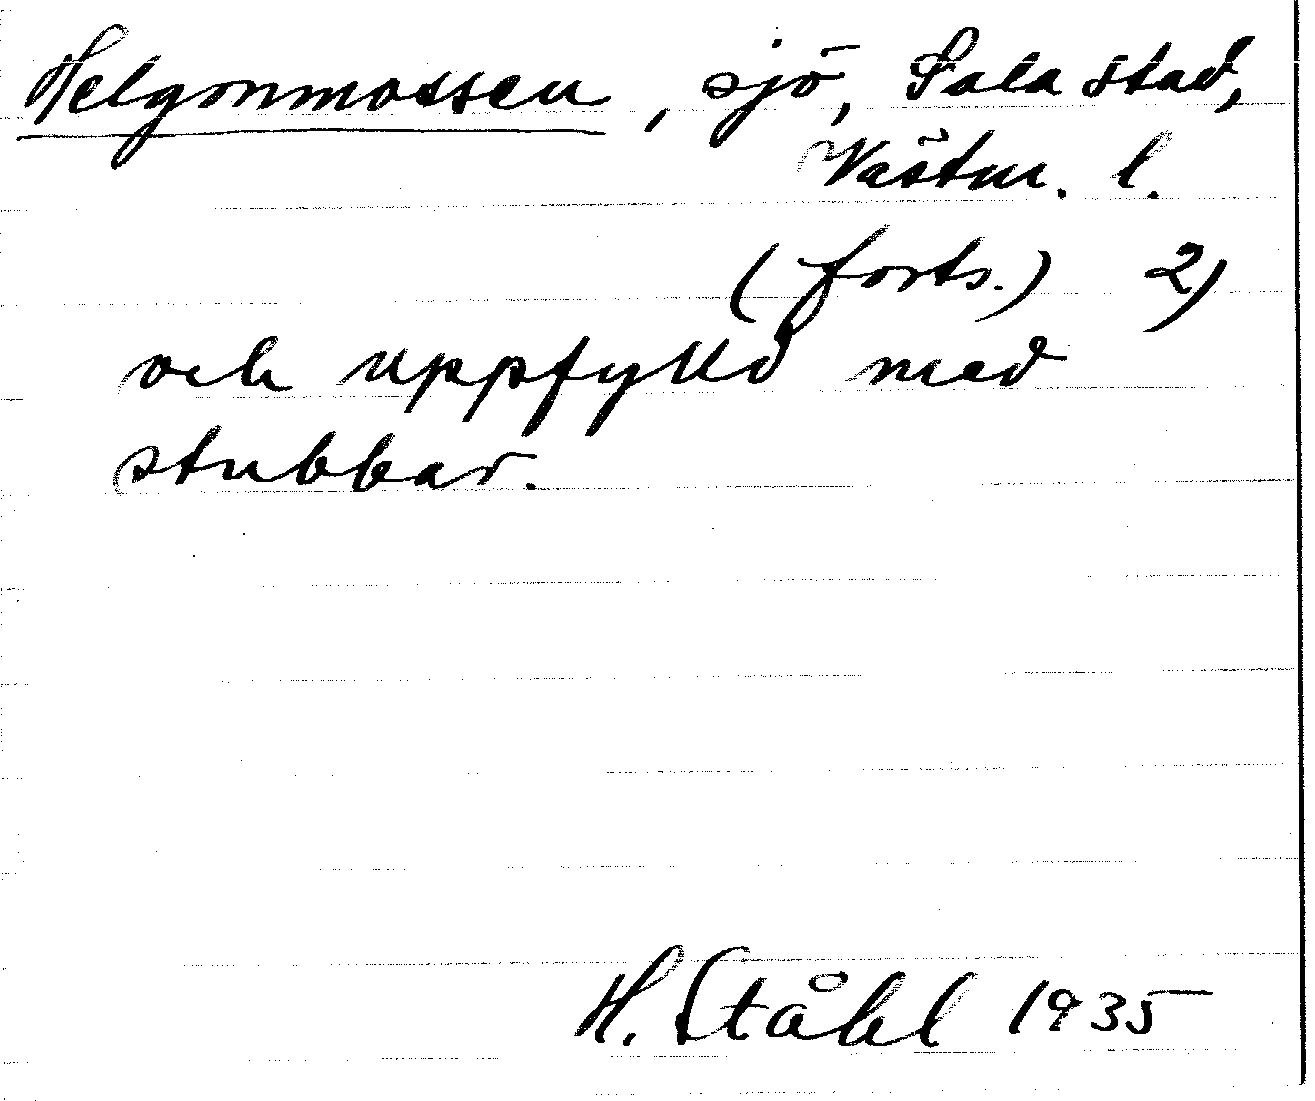 Helgonmossen, sjö, Sala stad,
Västm. l.
(forts.) 2)
och uppfylld med
stubbar.
H. Ståhl 1935